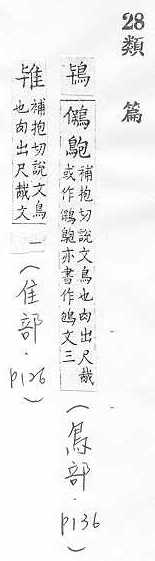 28 類篇
鴇
補抱切說文鳥也肉出尺胾
亦書作 文三
(鳥部・p136)
補抱切說文鳥
也肉出尺胾文
一(隹部・p126)